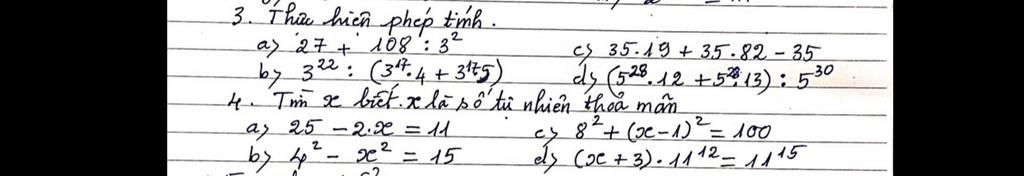 3. Thưc hiên phép tính.
a) 27 + 108 : 3²
c) 35.19 + 35.82 - 35
b) 3²² : (3¹⁷.4 + 3¹⁷.5)
d) (5²⁸.12 + 5²⁸.13) : 5³⁰
4. Tìm x biết. x là số tự nhiên thoả mãn
a) 25 - 2.x = 11
c) 8² + (x-1)² = 100
b) 4² - x² = 15
d) (x + 3). 11¹² = 11¹⁵